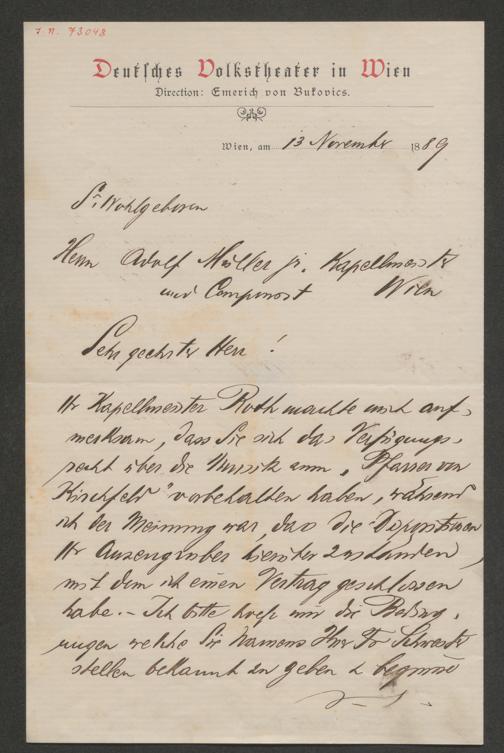 J. N. 73048
Deutsches Volkstheater in Wien
Direction: Emerich von Bukovics.
Wien, am 13 November 1889
Sr. Wohlgeboren
Herrn Adolf Müller jr. Kapellmeister
und Componist Wien
Sehr geehrter Herr!
Hr Kapellmeister Roth machte mich auf-
merksam, dass Sie sich das Verfügungs-
recht über die Musik zum „Pfarrer von
Kirchfeld" vorbehalten haben, während
ich der Meinung war, das die Disposition
Hr Anzengruber hierüber zustanden,
mit dem ich einen Vertrag geschlossen
habe. – Ich bitte mir die Beding-
ungen welche Sie Namens Ihrer Schwester
stellen bekannt zu geben &